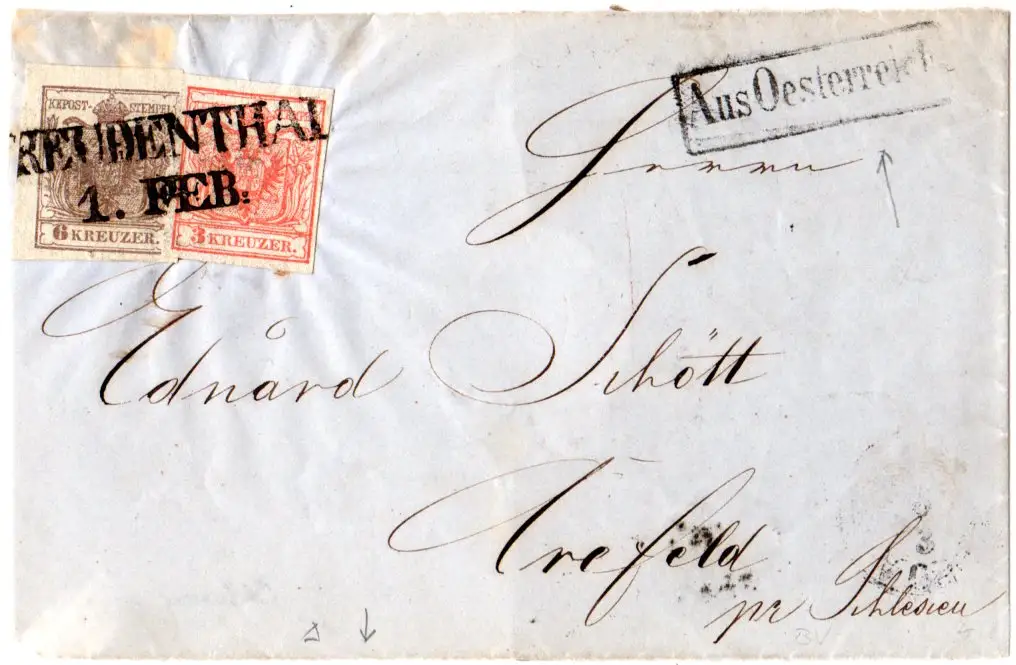 KKPOST-STEMPEL
FREUDENTHAL
1. FEB:
6 KREUZER.
3 KREUZER.
Aus Oesterreich
Herrn
Eduard Schött
Crefeld
pr Schlesien